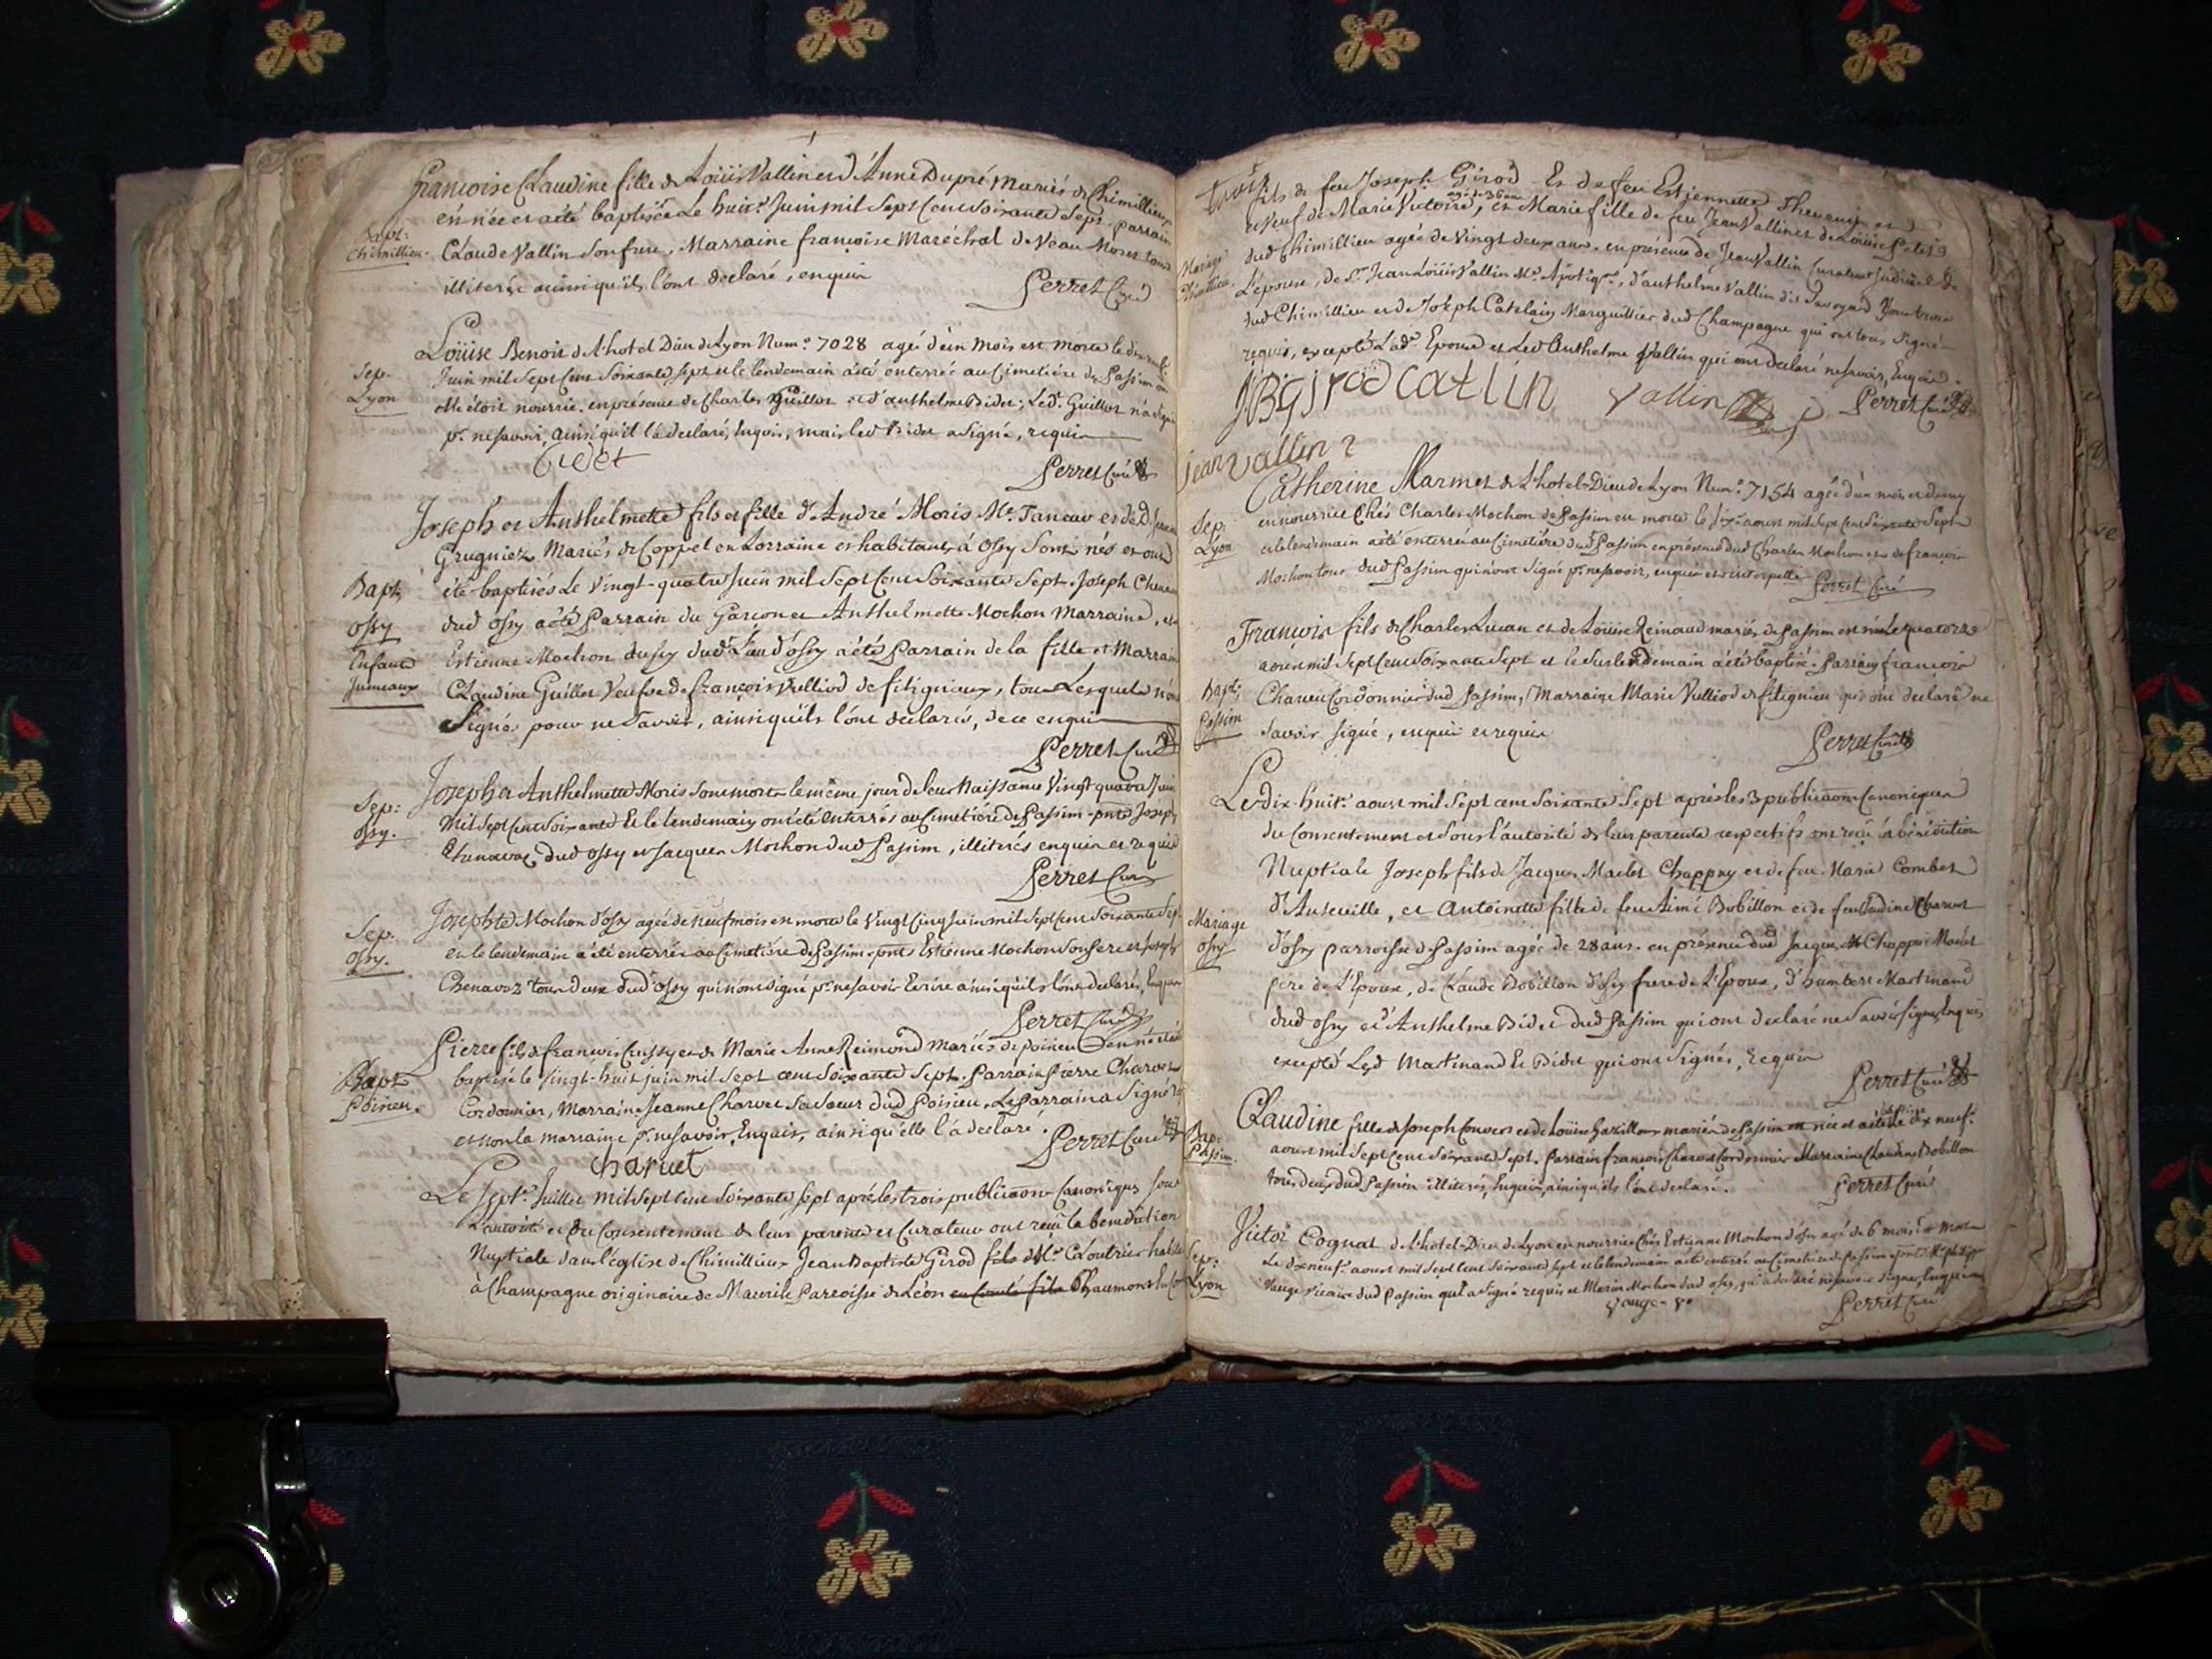 Françoise Claudine fille de Loüis Vallin et d'Anne Dupré mariés de Chimillieu
en née et a été baptisée le huit.e Juin mil Sept Cent Soixante Sept. parrain
Bapt: Chimillieu. Claude Vallin son frere, Marraine françoise Maréchal de Veau tous
illiterés ainsi qu'ils l'ont declaré, enquis
Perret Curé
Loüise Benoit de l'hotel Dieu de Lyon Num.o 7028 agée d'un mois est morte le
Sep. Juin mil Sept Cent Soixante Sept et le lendemain a été enterrée au Cimetiere de Passim ou
Lyon elle étoit nourrie. en présence de Charles Guillot et d'anthelme Bidet; Led. Guillot n'a signé
p.r ne savoir, ainsi qu'il l'a declaré, enquis, mais led Bidet a signé, requis
Bidet
Perret Curé
Joseph et Anthelmette fils et fille d'André Moris M.e Taneur et de
Grugniez Mariés de Coppel en Lorraine et habitants à Ossy sont nés et ont
Bapt. été baptisés Le Vingt-quatre Juin mil Sept Cent Soixante Sept. Joseph
Ossy dud Ossy a été Parrain du Garçon et Anthelmette Mochon Marraine, et
Enfants Estienne Mochon dud Lieu d'Ossy a été Parrain de la fille et Marraine
Jumeaux Claudine Guillot Veufve de françois Vulliod de fitignieux, tous Lesquels n'ont
Signés pour ne Savoir, ainsi qu'ils l'ont declarés, de ce enquis
Perret Curé
Joseph et Anthelmette Moris sont morts le même jour de leur Naissance Vingt quatre Juin
Sep: Mil Sept Cent Soixante Et le lendemain ont été enterrés au Cimetiére de Passim pnts Joseph
Ossy. Chenavaz dud Ossy et Jacques Mochon dud Passim, illiterés enquis et requis
Perret Curé
Josephte Mochon d'Ossy agée de neuf mois est morte le Vingt Cinq Juin mil Sept Cent Soixante Sept
Sep. et le lendemain a été enterrée au Cimetiére de Passim, pnts Estienne Mochon son Pere et Joseph
Ossy. Chenavaz tous deux dud Ossy qui n'ont signé p.r ne savoir Ecrire ainsi qu'ils l'ont declarés, Enquis
Perret Curé
Pierre fils de françois Cussy et de Marie Anne Reimond mariés de poirieu en né et a été
Bapt baptisé le Vingt-huit juin mil Sept cent Soixante Sept. Parrain Pierre Charvet
Poirieu. Cordonnier, Marraine Jeanne Charvet Sa Soeur dud Poirieu, Le Parrain a Signé
et non la marraine p.r ne savoir, Enquis, ainsi qu'elle l'a declaré.
Perret Curé
Charvet
Le Sept.e Juillet mil Sept Cent Soixante Sept aprés les trois publications Canoniques sous
L'autorité et du Consentement de leurs parents et Curateur ont reçu la benediction
Nuptiale dans l'eglise de Chimillieu Jean Baptiste Girod fils de M.e Cloutrier
à Champagne originaire de Paroisse de Léon en Comté fils
trois fils de feu Joseph Girod Et de feu Estiennette Thevenin et
agé de 36 ans
et Veuf de Marie Victoire, et Marie fille de feu Jean Vallin et de Loüise Petit
Mariage dud Chimillieu agée de Vingt deux ans. en présence de Jean Vallin Curateur Judiciel de
Chimillieu. L'épouse, de S.r Jean Loüis Vallin M.e Apotiq.re, d'anthelme Vallin dit Savoyard tous trois
dud Chimillieu et de Joseph Catelain Marguillier dud Champagne qui ont tous Signé
requis, excepté Lad. Epouse et Led Anthelme Vallin qui ont declaré ne savoir, Enquis.
JB girod catlin Vallin Perret Curé
jean vallin
Catherine Marmet de L'hotel-Dieu de Lyon Num.o 7154 agée d'un mois et demy
Sep. en nourrice Chés Charles Mochon de Passim est morte le dix.e aoust mil Sept Cent Soixante Sept
Lyon et le lendemain a été enterrée au Cimetiére dud Passim en présence dud Charles Mochon et de françois
Mochon tous dud Passim qui n'ont Signé p.r ne savoir, enquis et interpellé
Perret Curé
François fils de Charles Lucan et de Loüise Reinaud mariés de Passim est né le quatorze
aoust mil Sept Cent Soixante Sept et le Surlendemain a été baptisé. Parrain françois
Bapt. Charvet Cordonnier dud Passim, Marraine Marie Vulliod de fitignieu qui ont declaré ne
Passim savoir signé, enquis et requis
Perret Curé
Le dix-huit.e aoust mil Sept cent Soixante Sept aprés les 3 publications Canoniques
du Consentement et Sous l'autorité de leurs parents respectifs ont reçu la bénédiction
Nuptiale Joseph fils de Jacques Maclet Chappuy et de feu Marie Combet
d', et Antoinette fille de feu Aimé Bobillon et de feu Claudine Charvet
Mariage d'Ossy parroisse de Passim agée de 28 ans. en présence dud Jacques Chappui Maclet
Ossy pere de L'Epoux, de Claude Bobillon d'Ossy frere de L'Epouse, d'humbert Martinand
dud Ossy et d'Anthelme Bidet dud Passim qui ont declaré ne Savoir Signer, Enquis,
excepté Led Martinand Et Bidet qui ont Signés, Requis
Perret Curé
Claudine fille de Joseph Convert et de Loüise mariés de Passim est née et a été baptisée Le dix neuf.e
Bap: aoust mil Sept Cent Soixante Sept. Parrain françois Charvet Cordonnier Marraine Claudine Bobillon
Passim. tous deux dud Passim illiterés, Enquis, ainsi qu'ils l'ont declaré.
Perret Curé
Victor Cognat de l'hotel-Dieu de Lyon en nourrice Chés Estienne Mochon d'Ossy agé de 6 mois est mort
Sep: Le dix neuf.e aoust mil Sept Cent Soixante Sept et le lendemain a été enterré au Cimetiére de Passim, pnts
Lyon Vauge Vicaire dud Passim qui a Signé requis et Mochon dud Ossy, qui a declaré ne savoir Signer, Enquis
Vauge Vre
Perret Curé